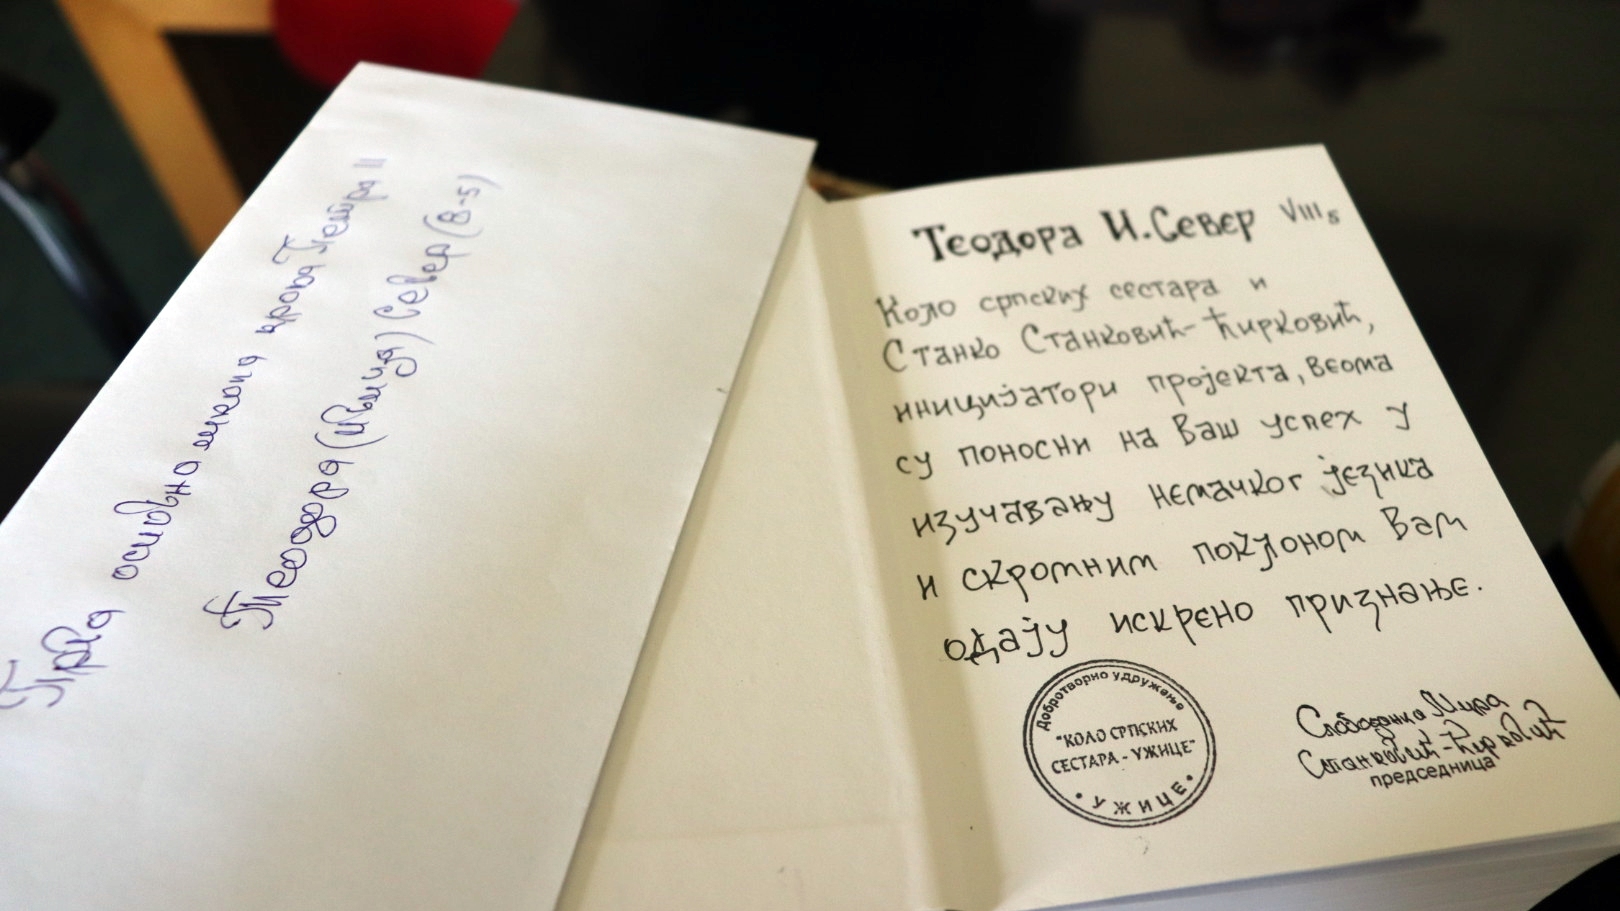 Прва основна школа краља Петра II
Теодора (Ивица) Север (8-5)
Теодора И. Север VIII5
Коло српских сестара и
Станко Станковић-Ћирковић,
иницијатори пројекта, веома
су поносни на Ваш успех у
изучавању немачког језика
и скромним поклоном Вам
одају искрено признање.
Добротворно удружење
"КОЛО СРПСКИХ
СЕСТАРА - УЖИЦЕ"
• УЖИЦЕ •
Слободанка Мира
Станковић-Ћирковић
председница